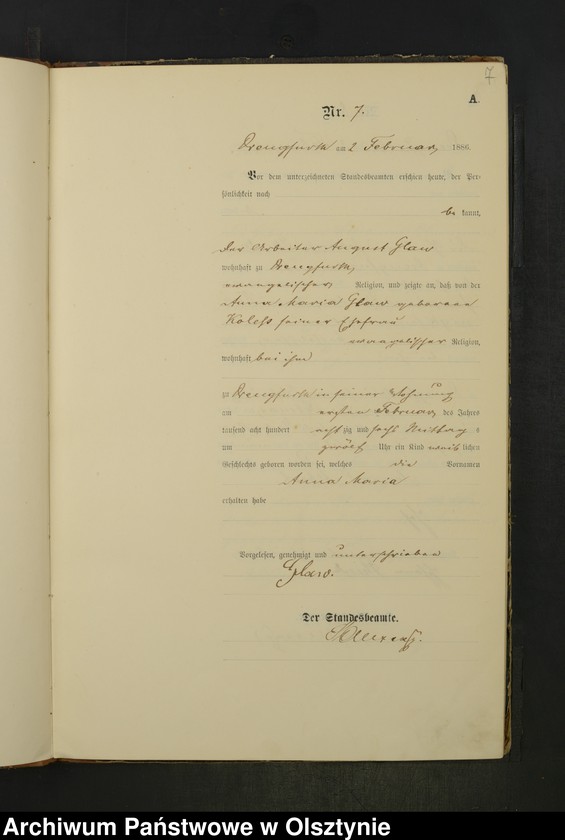 7
A.
Nr. 7.
Drengfurth am 2 Februar 1886.
Vor dem unterzeichneten Standesbeamten erschien heute, der Per-
sönlichkeit nach
be kannt,
der Arbeiter August Glaw
wohnhaft zu Drengfurth,
evangelischer Religion, und zeigte an, daß von der
Anna Maria Glaw geborene
seiner Ehefrau
evangelischer Religion,
wohnhaft bei ihm
zu Drengfurth in seiner Wohnung
am ersten Februar des Jahres
tausend acht hundert acht zig und sechs Mittag s
um zwölf Uhr ein Kind weib lichen
Geschlechts geboren worden sei, welches die Vornamen
Anna Maria
erhalten habe
Vorgelesen, genehmigt und unterschrieben
Glaw.
Der Standesbeamte.
Archiwum Państwowe w Olsztynie